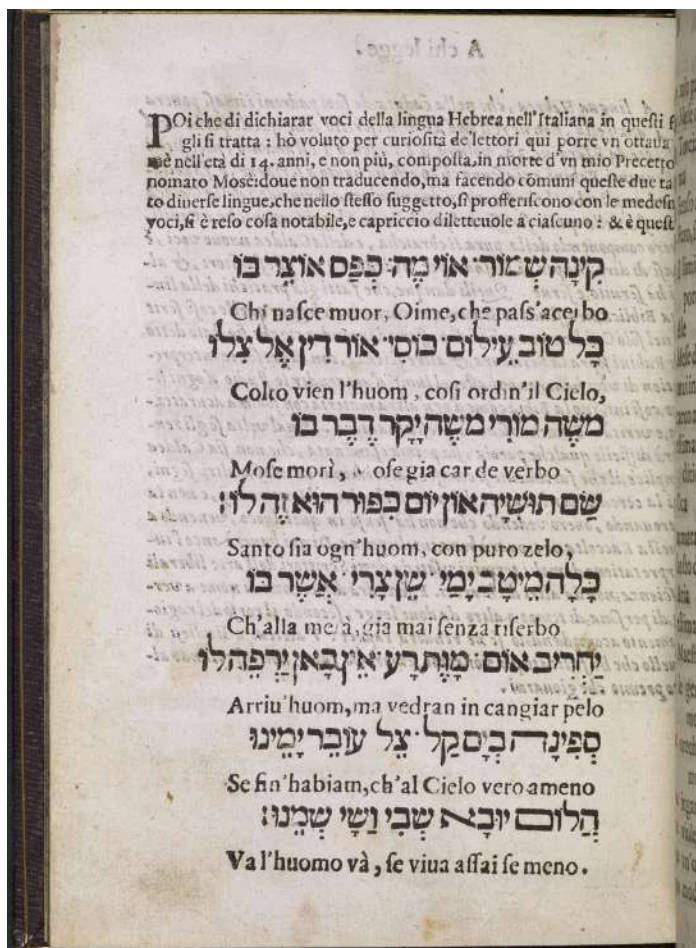 POi che di dichiarar voci della lingua Hebrea nell'Italiana in questi
gli si tratta : hò voluto per curiosità de'lettori qui porre vn ottaua
nell'età di 14. anni, e non più, composta, in morte d'vn mio Precetto
nomato Mosè: doue non traducendo, ma facendo cōmuni queste due
to diuerse lingue, che nello stesso suggetto, si profferiscono con le medesm
voci, si è reso cosa notabile, e capriccio diletteuole à ciascuno : & è quest
קִינָה שְׁמוֹר אוֹי מֶה כְּפַס אוֹצֵר בּוֹ
Chi nasce muor, Oime, che pass'acerbo
כָּל טוֹב עֵילוֹם כּוֹסִי אוֹר דִין אֶל צִלּוֹ
Colto vien l'huom, cosi ordin'il Cielo,
מֹשֶה מוֹרִי מֹשֶה יָקָר דֶבֶר בּוֹ
Mose morì, ose gia car de verbo
שָׂם תּוּשִׁיָה אוֹן יוֹם כִּפּוּר הוּא זֶה לוֹ:
Santo sia ogn'huom, con puro zelo,
כָּלָה מֵיטָב יָמַי שֵׁן צָרִי אֲשֶׁר בּוֹ
Ch'alla metà, gia mai senza riserbo
יַחְרִיב אוֹם מָוֶת רָע אֵין כָּאן יַרְפֵה לוֹ
Arriu'huom, ma vedran in cangiar pelo
סְפִינָה בְּיָם קַל צֵל עוֹבֵר יָמֵינוּ
Se fin'habiam, ch'al Cielo vero ameno
הֲלוֹם יוּבָא שְׁבִי וַשָּׁי שְׁמֵנוּ:
Va l'huomo và, se viua assai se meno.